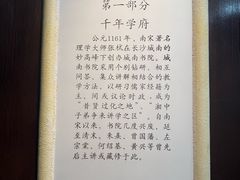 第一部分
千年学府
公元1161年，南宋著名
理学大师张栻在长沙城南的
妙高峰下创办城南书院。城
南书院采用个别钻研、相互
问答、集众讲解相结合的教
学方法，以研习儒家经籍为
主，间或议论时政，成为
“昔贤过化之地”、“湘中子
弟争来讲学之区”。自南
宋以来，书院几度兴废，延
至清末，朱熹、曾国藩、左
宗棠、何绍基、黄兴等曾先
后主讲或藏修于此。